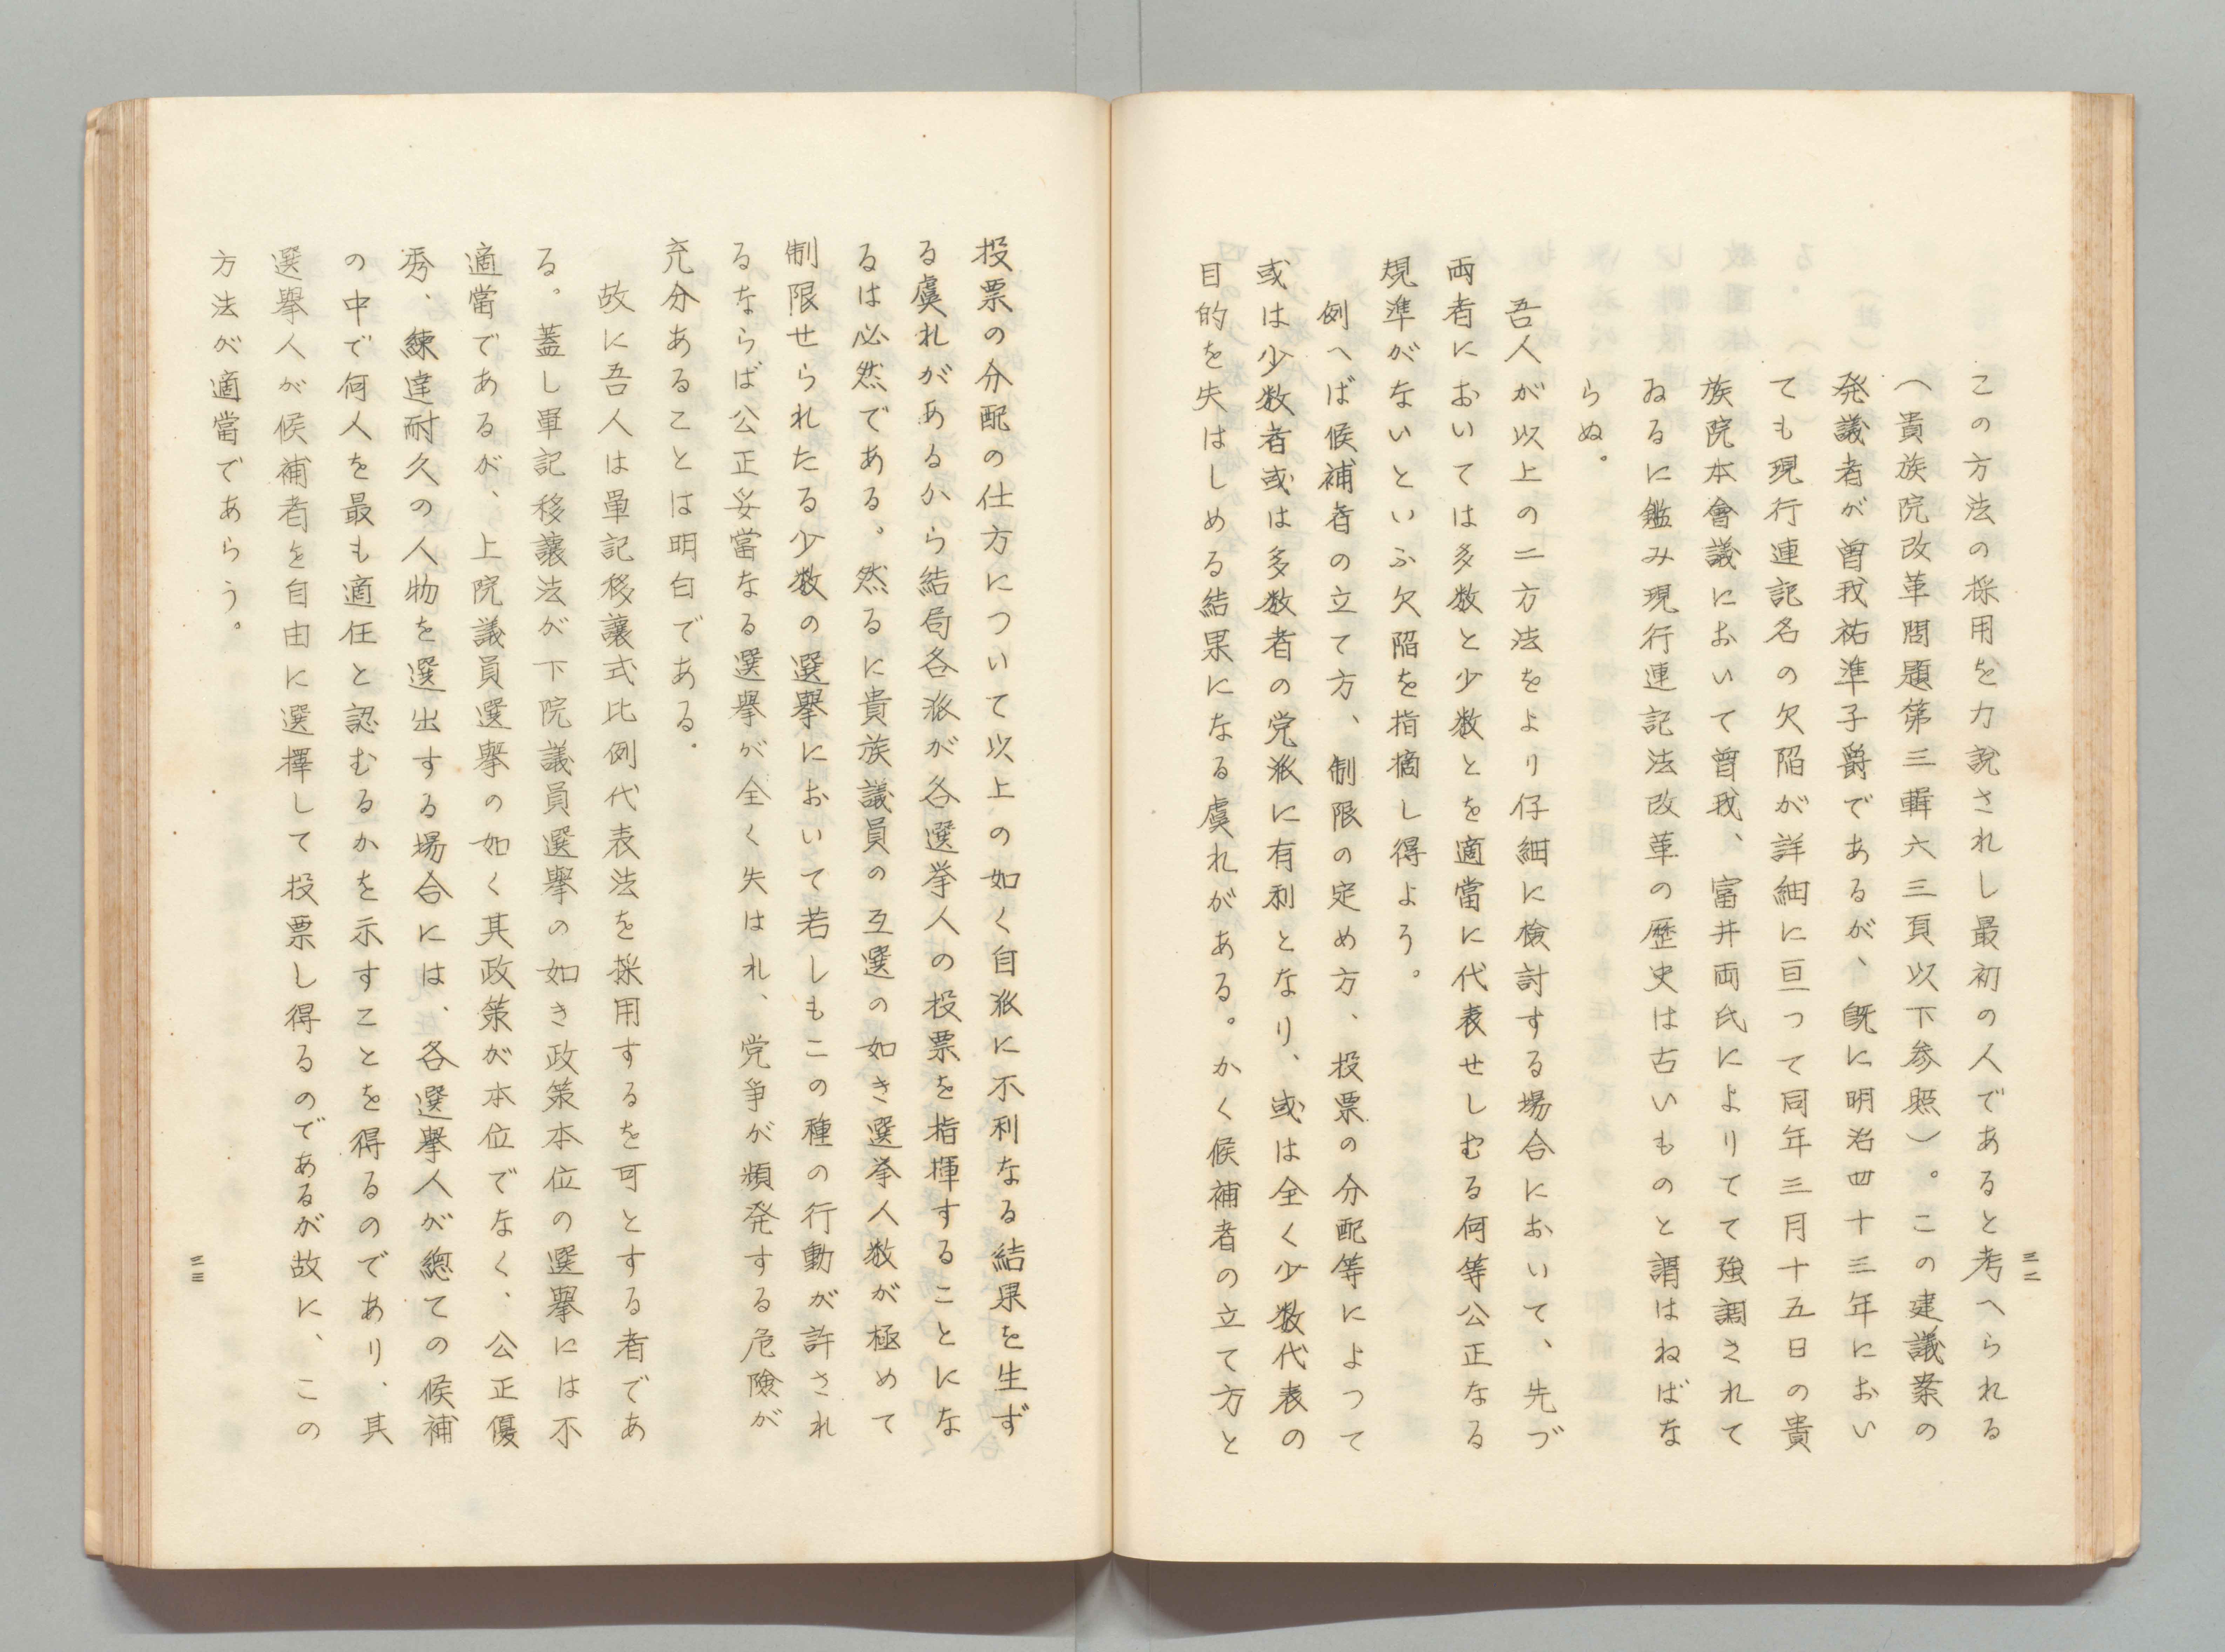 この方法の採用を力説されし最初の人であると考へられる
(貴族院改革問題第三輯六三頁以下参照)。この建議案の
発議者が曽我祐準子爵であるが、既に明治四十三年におい
ても現行連記名の欠陥が詳細に亘つて同年三月十五日の貴
族院本會議において曽我、富井両氏によりてて強調されて
ゐるに鑑み現行連記法改革の歴史は古いものと謂はねばな
らぬ。
吾人が以上の二方法をより仔細に検討する場合において、先づ
両者においては多数と少数とを適當に代表せしむる何等公正なる
規準がないといふ欠陥を指摘し得よう。
例へば候補者の立て方、制限の定め方、投票の分配等によつて
或は少数者或は多数者の党派に有利となり、或は全く少数代表の
目的を失はしめる結果になる虞れがある。かく候補者の立て方と
三二
投票の分配の仕方について以上の如く自派に不利なる結果を生ず
る虞れがあるから結局各派が各選挙人の投票を指揮することにな
るは必然である。然るに貴族議員の互選の如き選挙人数が極めて
制限せられたる少数の選擧において若しもこの種の行動が許され
るならば公正妥當なる選擧が全く失はれ、党争が頻発する危險が
充分あることは明白である.
故に吾人は單記移譲式比例代表法を採用するを可とする者であ
る。蓋し單記移譲法が下院議員選擧の如き政策本位の選擧には不
適當であるが、上院議員選擧の如く其政策が本位でなく、公正優
秀、練達耐久の人物を選出する場合には、各選擧人が總ての候補
の中で何人を最も適任と認むるかを示すことを得るのであり、其
選擧人が候補者を自由に選擇して投票し得るのであるが故に、この
方法が適當であらう。
三三